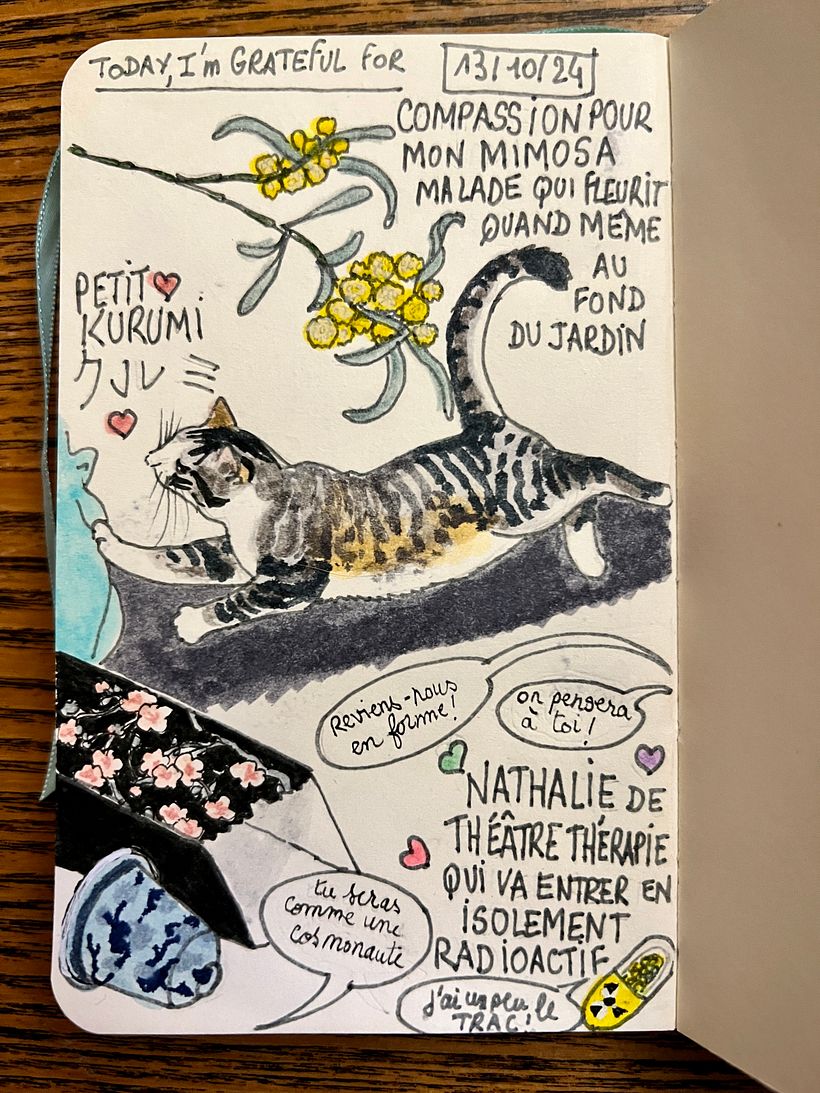 TODAY, I'm GRATEFUL FOR
13/10/24
COMPASSION POUR
MON MIMOSA
MALADE QUI FLEURIT
QUAND MÊME
AU
FOND
DU JARDIN
PETIT
KURUMI
クルミ
Reviens-nous
en forme!
on pensera
à toi!
NATHALIE DE
THÉÂTRE THÉRAPIE
QUI VA ENTRER EN
ISOLEMENT
RADIOACTIF
tu seras
comme une
cosmonaute
j'ai un peu le
TRAC!